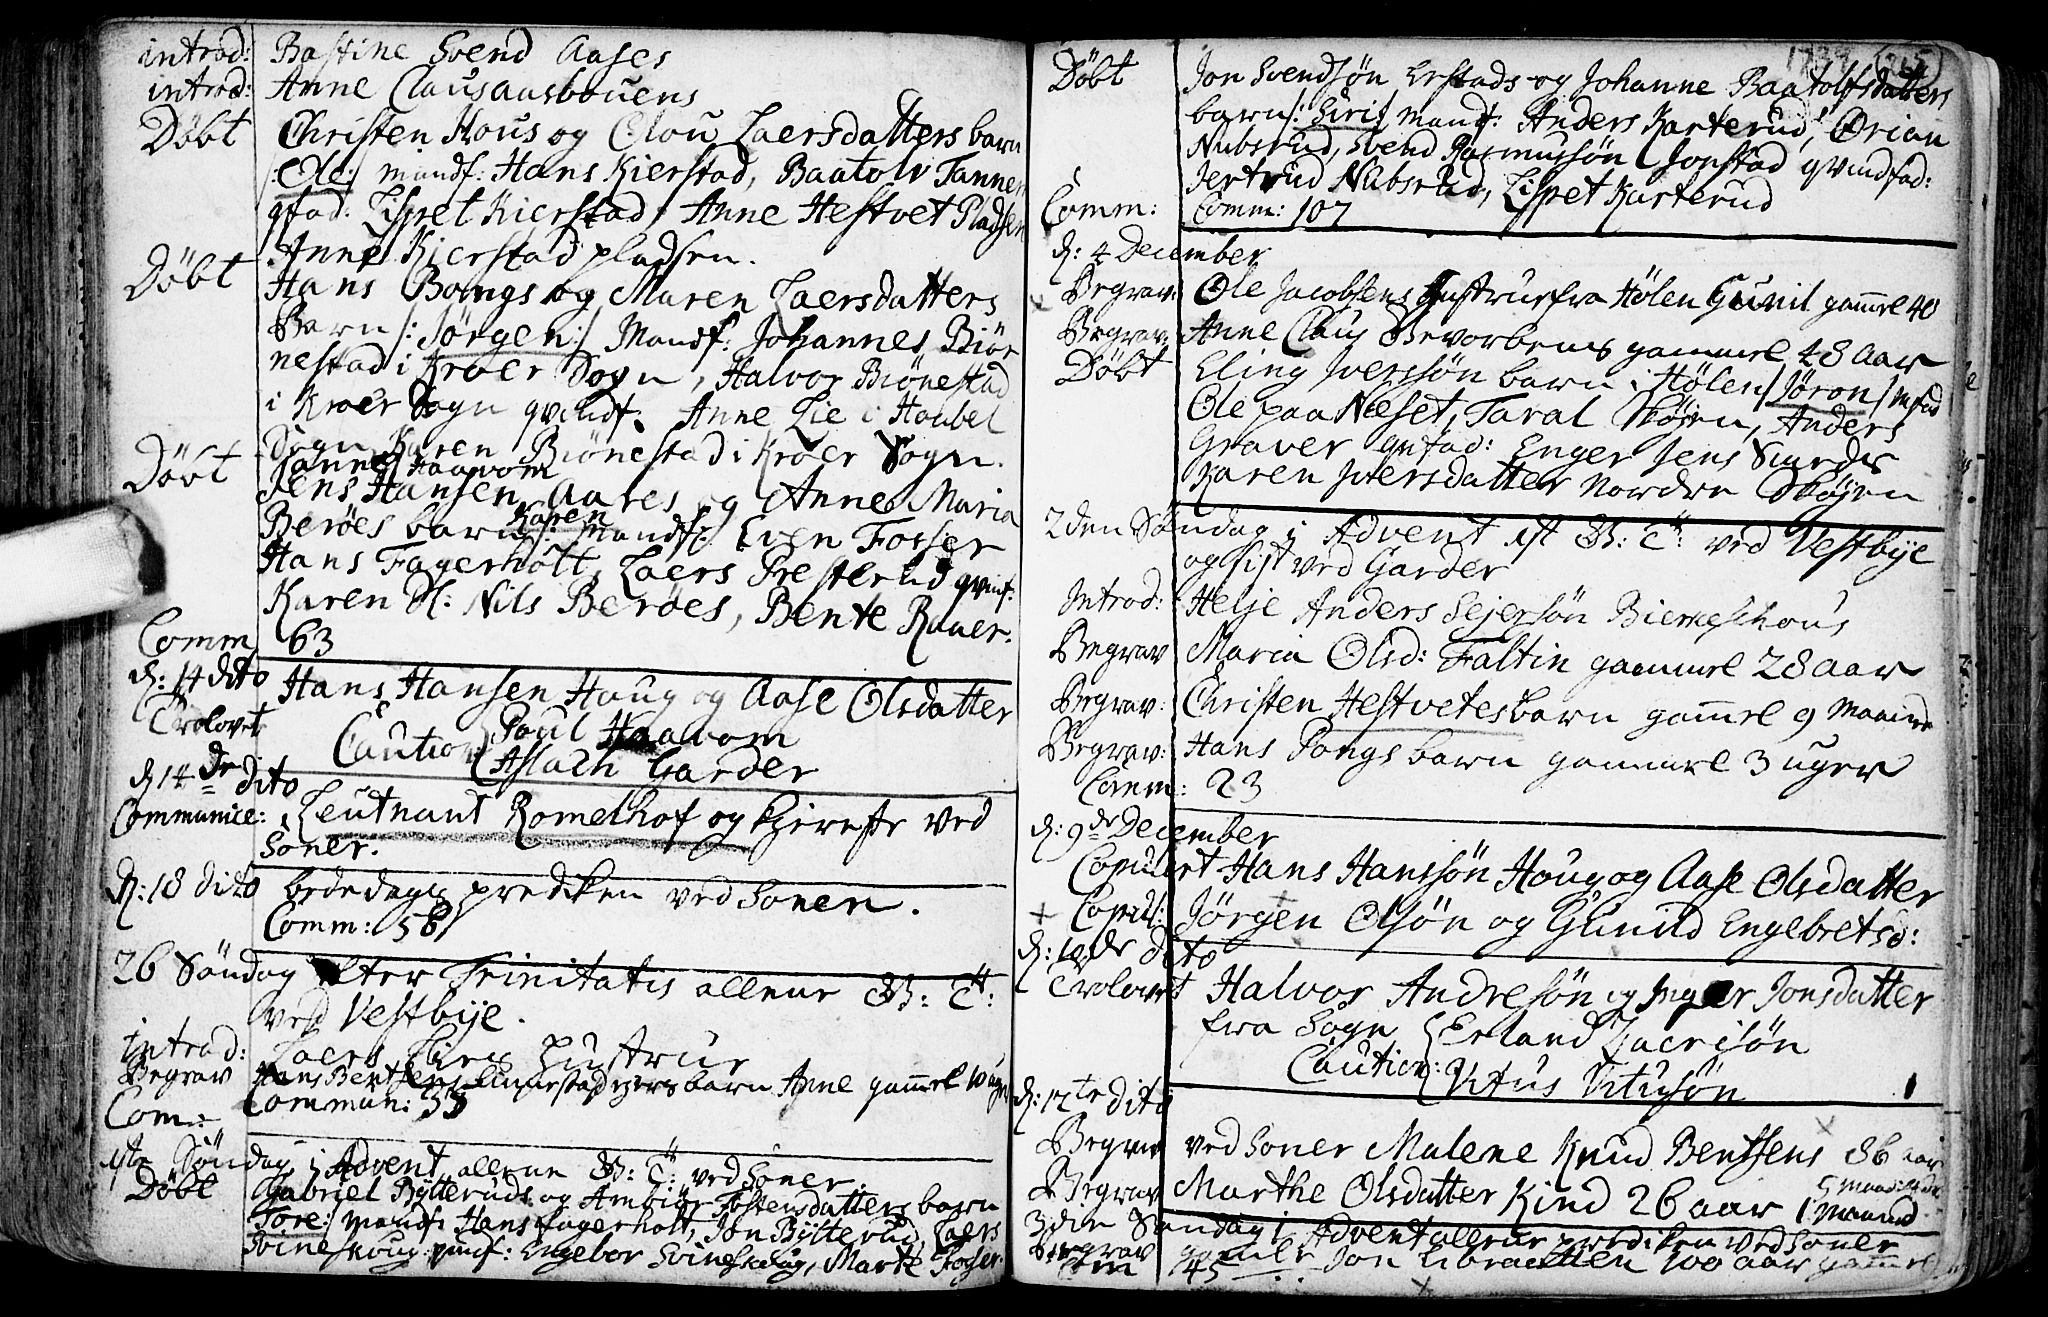 introd: Bastine Svend Aases
introd: Anne Claus aasbouens
Döbt Christen Hous og Laersdatters barn
/:Ole:/ mandf: Hans Kierstad, Baatolv Tanner
qfad: Lispet Kierstad, Anne Hestvet Pladsen
Anne Kierstad pladsen.
Döbt Hans Bongs og Maren Laersdatters
Barn /: Jörgen :/ Mandf: Johannes Biör
nestad i Kroer Sogn, Halvor Biönestad
i Kroer Sogn qvindf: Anne Lie i Haabel
Sogn Karen Biönestad i Kroer Sogn.
Haavom
Döbt Jens Hansen Aares og Anne Maria
Beröes barn /: Karen mandf: Even Fosser
Hans Fagerholt, Laers Presterud qvinf:
Karen Sl: Nils Beröes, Bente Rauer.
Comm 63
d: 14 dito Hans Hansen Haug og Aase Olsdatter
Trolovet Caution Poul Haavom
Aslach Garder
d 14 de dito
Communice: Leutnant Romelhof og kjereste ved
Soner.
d: 18 dito bededags prediken ved Soner.
Comm: 58
26 Söndag efter Trinitatis allene B: T:
ved Vestbije.
introd: Laers Lies Hustrue
Begrav Hans Bentsens barn Anne gammel 10 uger
Com: Commun: 33
1ste Söndag i Advent allene B: T: ved Soner
Döbt Gabriel Bytteruds og Tostensdatters barn
Tore: mandf: Hans Fagerholt, Jon Bytterud, Laers
Svineskoug qvinf: Engebor Svineskoug, Marte Fosser
1734
Döbt Jon Svendsön Erstads og Johanne Baatolfsdatters
barn /: Siri :/ mandf: Anders Karterud, Örian
Nubsrud, Svend Rasmussön Jonstad qvindfad:
Jertrud Nubsrud, Lispet Karterud
Comm: Comm: 107
d: 4 December
Begrav: Ole Jacobsens Hustrue fra Hölen Gunil gammel 40
Begrav: Anne Claus gammel 48 Aar
Döbt Eling Iversön barn i Hölen / Jöron / mfad
Ole paa Næset, Taral Sköjen, Anders
Graver qvfad: Enger Jens
Karen Iversdatter Nordre Sköjen
2den Söndag i Advent 1st B: T: ved Vestbije
og sist ved Garder
Introd: Helje Anders Sejersön Bierkeshous
Begrav Maria Olsd: Faltin gammel 28 aar
Begrav: Christen Hestvetes barn gammel 9 Maaneder
Begrav: Hans Pongs barn gammel 3 uger
Comm: 23
d: 9 de December
Copulert Hans Hanssön Houg og Aase Olsdatter
Copul: Jörgen Olsön og Gunild Engebretsd:
d: 10 de dito
Trolovet Halvor Andresön og Inger Jonsdatter
fra Sogn Erland
Caution: Vitus Vitusön
d: 12te dito
Begrav ved Soner Malene Knud Bentsens 86 aar
Begrav Marthe Olsdatter Kind 26 aar 1 Maaned
3die Söndag i Advent allene prediken ved Soner
Begrav gamle Jon 100 aar gammel
Com 45